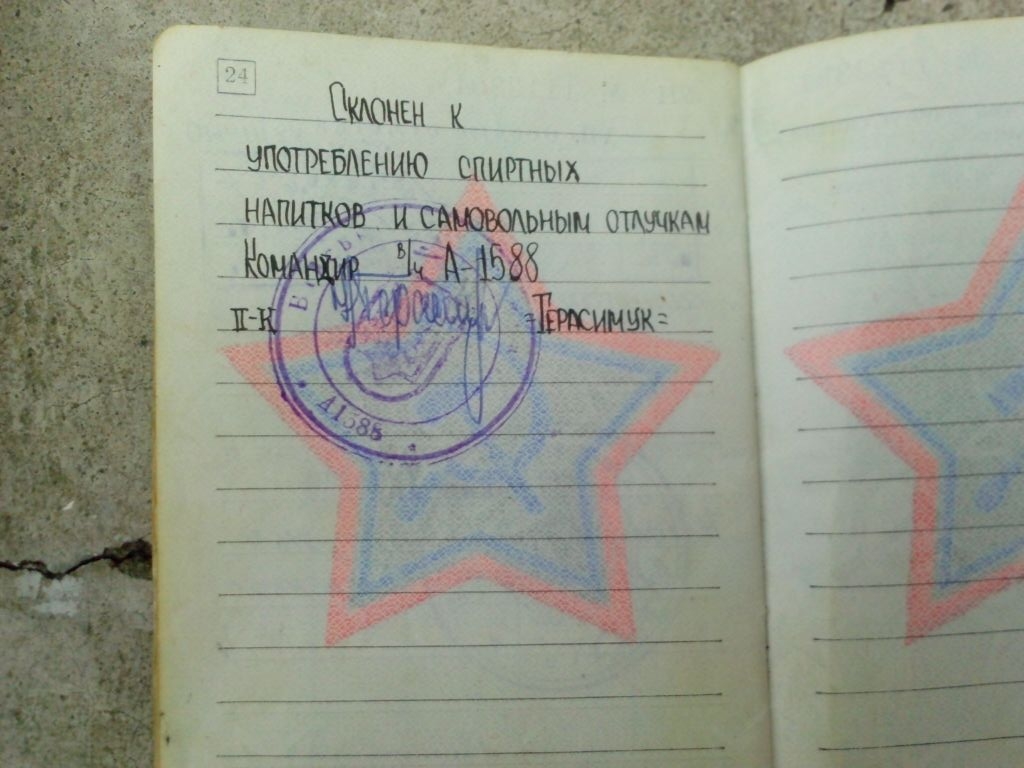 24
Склонен к
употреблению спиртных
напитков и самовольным отлучкам
Командир в/ч А-1588
II-К =Герасимук=
А1588